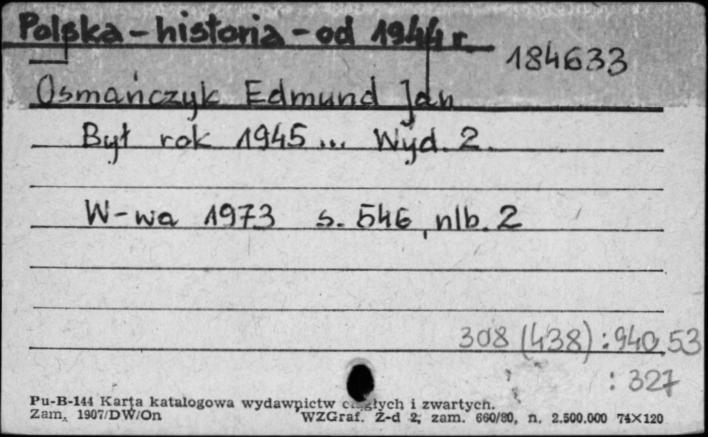 Polska - historia - od 1944 r.
184633
Osmańczyk Edmund Jan
Był rok 1945... Wyd. 2.
W-wa 1973 s. 546, nlb. 2
308 (438) : 940.53
: 327
Pu-B-144 Karta katalogowa wydawnictw ciągłych i zwartych.
Zam. 1907/DW/On WZGraf. Z-d 2, zam. 660/80, n. 2.500.000 74×120